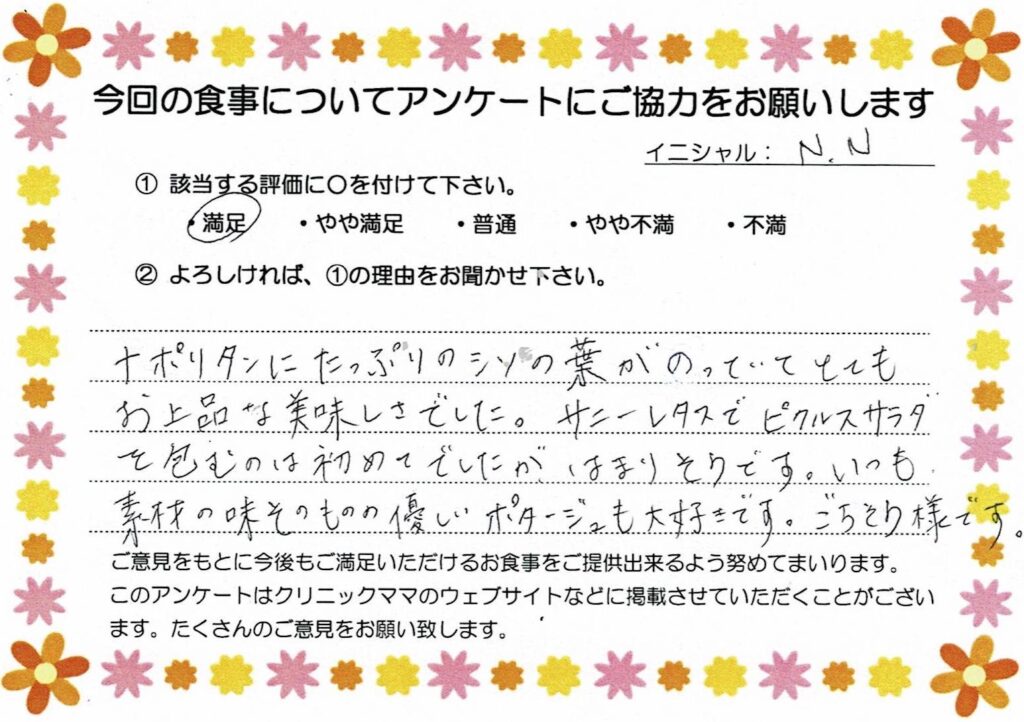 今回の食事についてアンケートにご協力をお願いします
イニシャル： N.N
① 該当する評価に〇を付けて下さい。
・満足 ・やや満足 ・普通 ・やや不満 ・不満
② よろしければ、①の理由をお聞かせ下さい。
ナポリタンにたっぷりのシソの葉がのっていてとても
お上品な美味しさでした。サニーレタスでピクルスサラダ
を包むのは初めてでしたが、はまりそうです。いつも
素材の味そのものの優しいポタージュも大好きです。ごちそう様です。
ご意見をもとに今後もご満足いただけるお食事をご提供出来るよう努めてまいります。
このアンケートはクリニックママのウェブサイトなどに掲載させていただくことがござい
ます。たくさんのご意見をお願い致します。